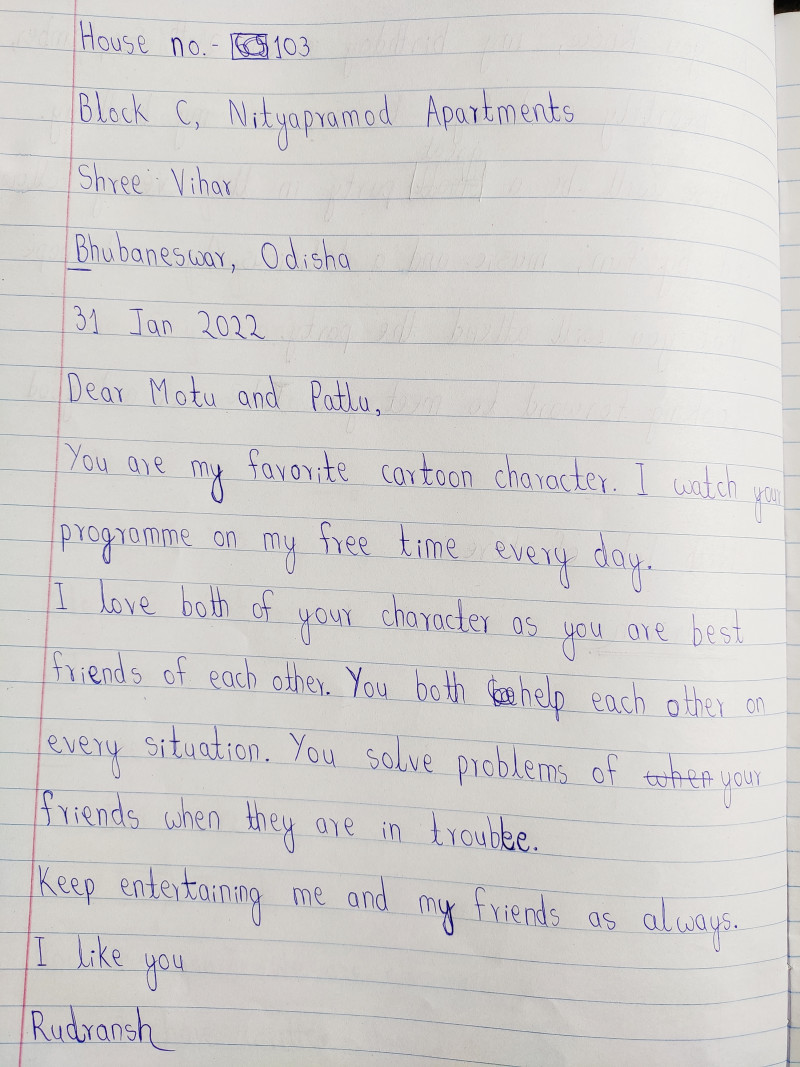 House no.- 103
Block C, Nityapramod Apartments
Shree Vihar
Bhubaneswar, Odisha
31 Jan 2022
Dear Motu and Patlu,
You are my favorite cartoon character. I watch your
programme on my free time every day.
I love both of your character as you are best
friends of each other. You both help each other on
every situation. You solve problems of when your
friends when they are in trouble.
Keep entertaining me and my friends as always.
I like you
Rudransh